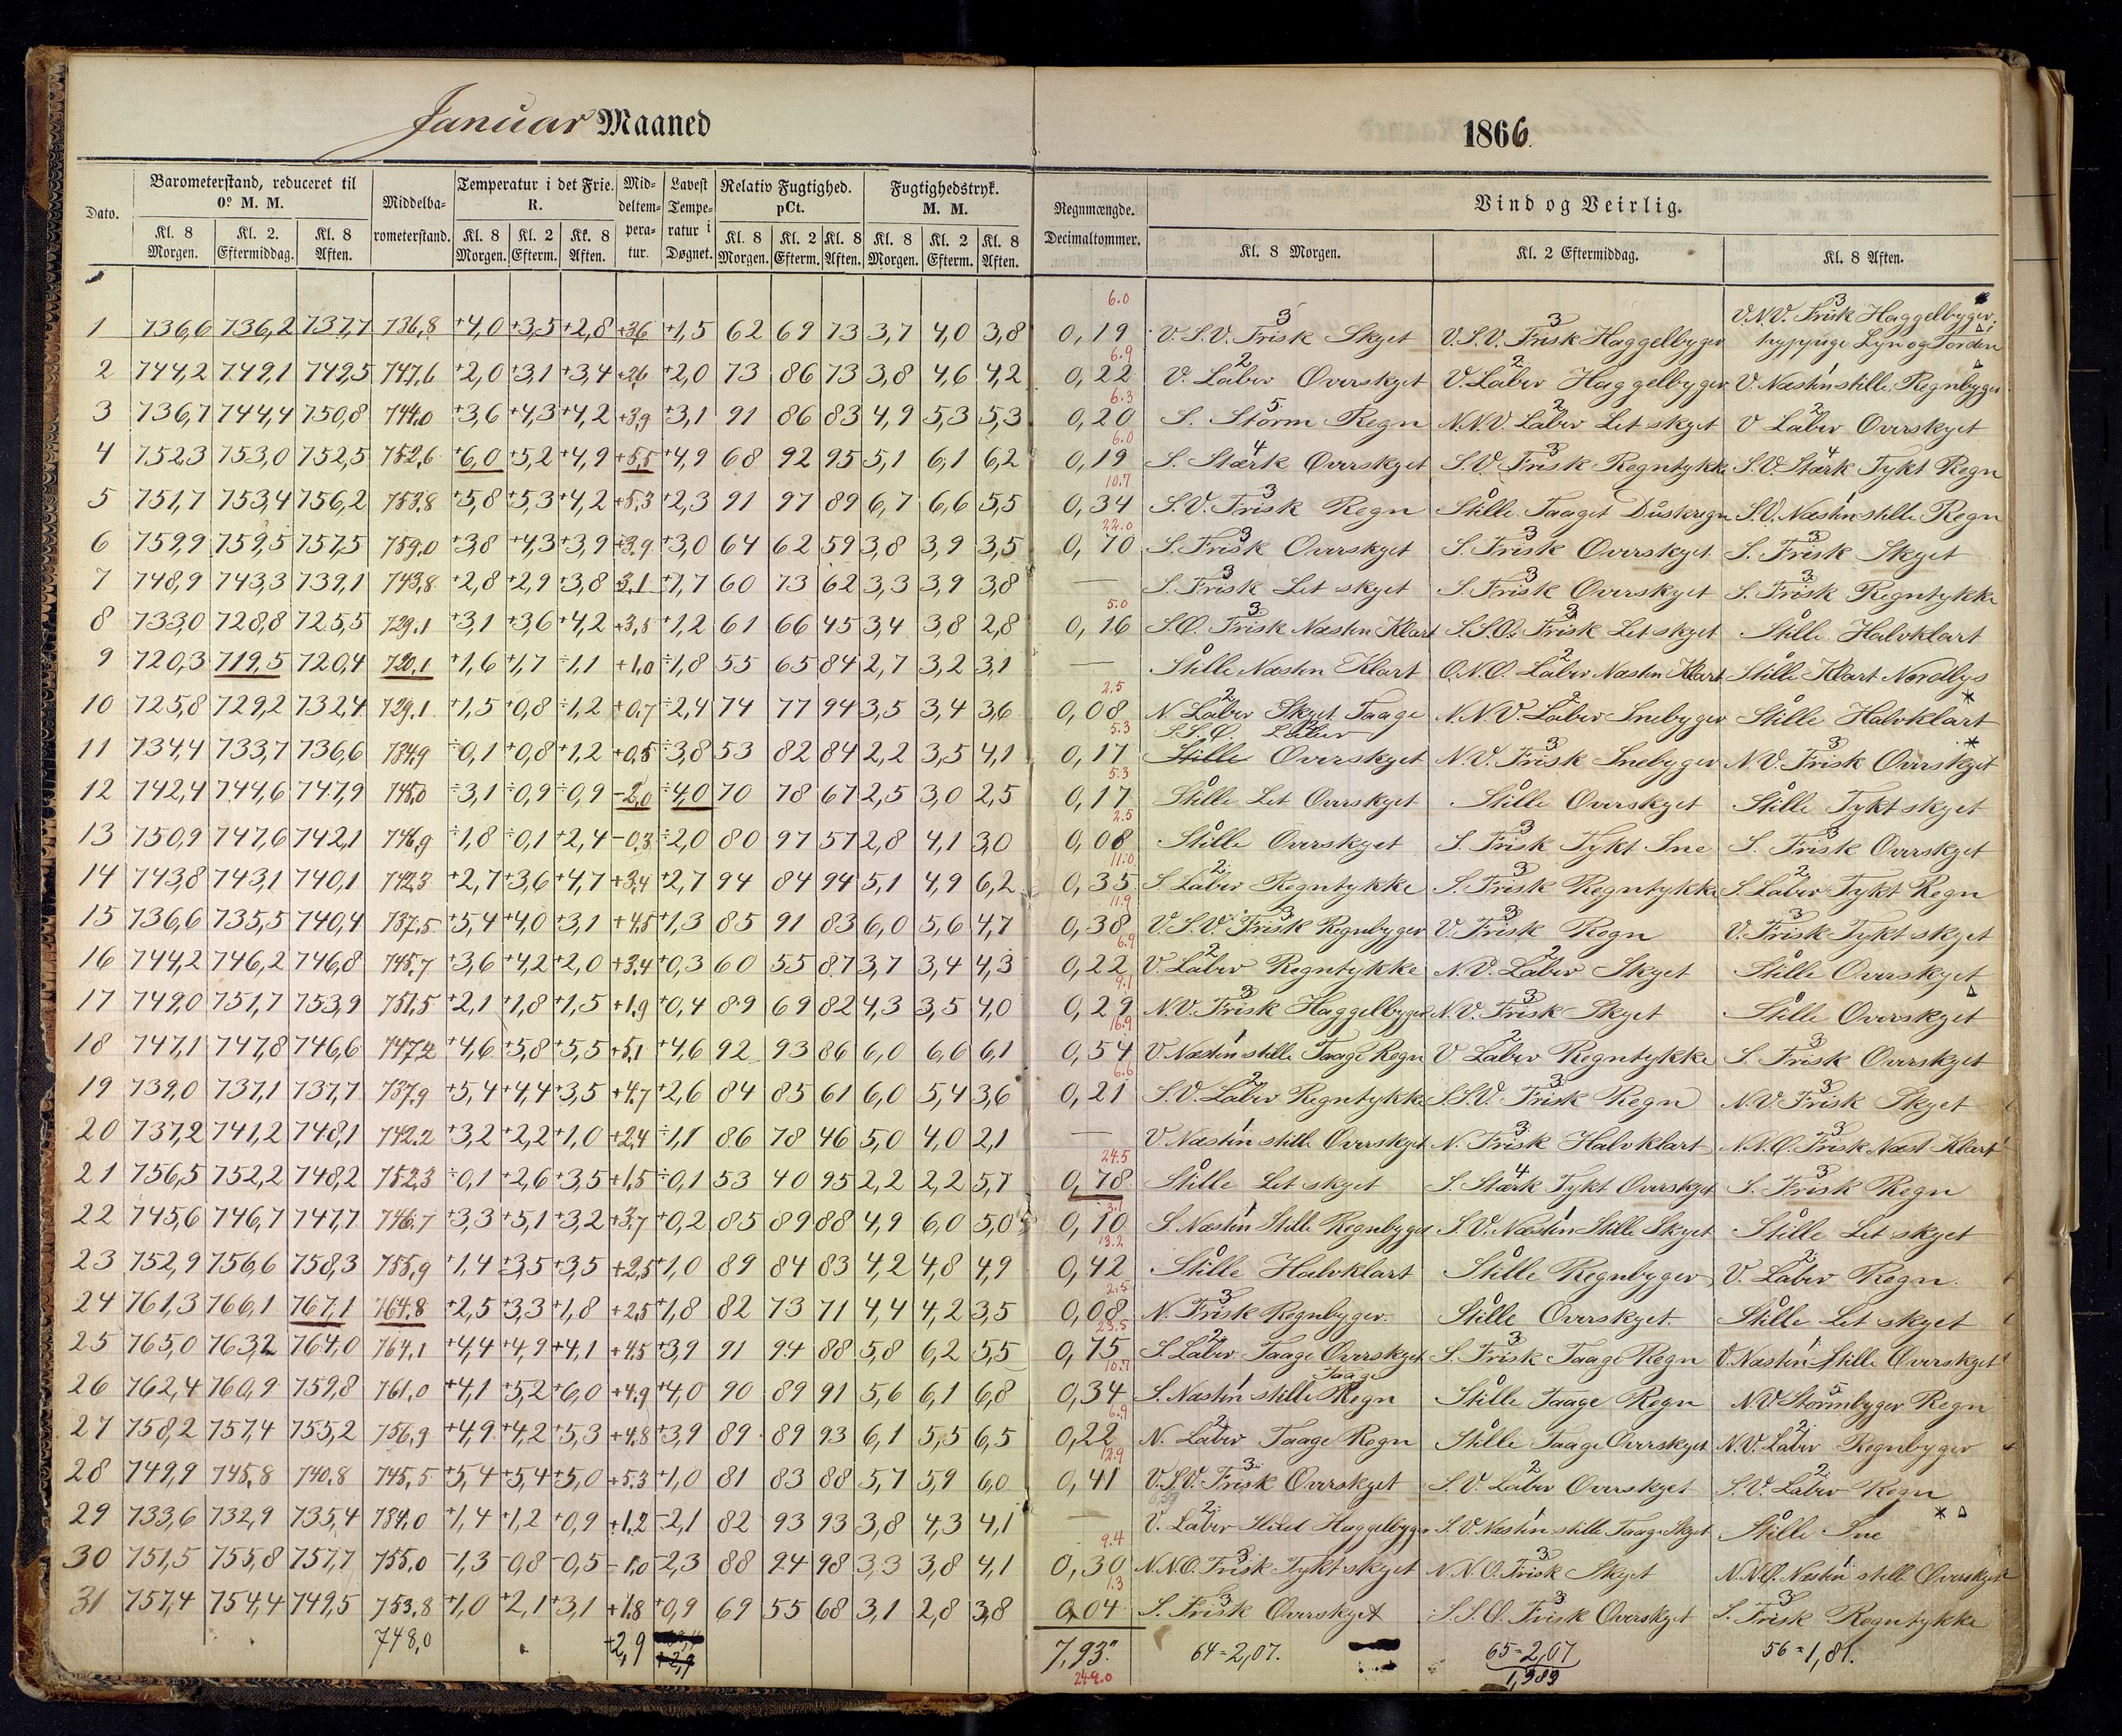 Januar Maaned
1866.
Dato. Barometerstand, reduceret til 0° M. M. Middelbarometerstand. Temperatur i det Frie. R. Middeltemperatur. Lavest Temperatur i Døgnet. Relativ Fugtighed. pCt. Fugtighedstryk. M. M. Regnmængde. Decimaltommer. Vind og Veirlig.
Kl. 8 Morgen. Kl. 2. Eftermiddag. Kl. 8 Aften. Kl. 8 Morgen. Kl. 2 Efterm. Kl. 8 Aften. Kl. 8 Morgen. Kl. 2 Efterm. Kl. 8 Aften. Kl. 8 Morgen. Kl. 2 Efterm. Kl. 8 Aften. Kl. 8 Morgen. Kl. 2 Eftermiddag. Kl. 8 Aften.
1 736,6 736,2 737,7 736,8 +4,0 +3,5 +2,8 +3,6 +1,5 62 69 73 3,7 4,0 3,8 6.0 0,19 V.S.V. Frisk 3 Skyet V.S.V. Frisk 3 Haggelbyger V.N.V. Frisk 3 Haggelbyger. hyppige Lyn og Torden
2 744,2 749,1 749,5 747,6 +2,0 +3,1 +3,4 +2,6 +2,0 73 86 73 3,8 4,6 4,2 6.9 0,22 V. Laber 2 Overskyet V. Laber 2 Haggelbyger V. Næsten stille 1 Regnbyger
3 736,7 744,4 750,8 744,0 +3,6 +4,3 +4,2 +3,9 +3,1 91 86 83 4,9 5,3 5,3 6.3 0,20 S. Storm 5 Regn N.N.V. Laber 2 Let skyet V Laber 2 Overskyet
4 752,3 753,0 752,5 752,6 +6,0 +5,2 +4,9 +5,5 +4,9 68 92 95 5,1 6,1 6,2 6.0 0,19 S. Stærk 4 Overskyet S.V. Frisk 3 Regntykke S.V. Stærk 4 Tykt Regn
5 751,7 753,4 756,2 753,8 +5,8 +5,3 +4,2 +5,3 +2,3 91 97 89 6,7 6,6 5,5 10.7 0,34 S.V. Frisk 3 Regn Stille 0 Taaget Duskregn S.V. Næsten stille 1 Regn
6 759,9 759,5 757,5 759,0 +3,8 +4,3 +3,9 +3,9 +3,0 64 62 59 3,8 3,9 3,5 22.0 0,70 S. Frisk 3 Overskyet S. Frisk 3 Overskyet S. Frisk 3 Skyet
7 748,9 743,3 739,1 743,8 +2,8 +2,9 +3,8 +3,1 +1,7 60 73 62 3,3 3,9 3,8 — S. Frisk 3 Let skyet S. Frisk 3 Overskyet S. Frisk 3 Regntykke
8 733,0 728,8 725,5 729,1 +3,1 +3,6 +4,2 +3,5 +1,2 61 66 45 3,4 3,8 2,8 5.0 0,16 S.O. Frisk 3 Næsten Klart S.S.O. Frisk 3 Let skyet Stille 0 Halvklart
9 720,3 719,5 720,4 720,1 +1,6 +1,7 ÷1,1 +1,0 ÷1,8 55 65 84 2,7 3,2 3,1 — Stille 0 Næsten Klart O.N.O. Laber 2 Næsten Klart Stille 0 Klart Nordlys
10 725,8 729,2 732,4 729,1 +1,5 +0,8 ÷1,2 +0,7 ÷2,4 74 77 94 3,5 3,4 3,6 2.5 0,08 N. Laber 2 Skyet Taage N.N.V. Laber 2 Snebyger Stille 0 Halvklart
11 734,4 733,7 736,6 734,9 ÷0,1 +0,8 +1,2 +0,5 ÷3,8 53 82 84 2,2 3,5 4,1 5.3 0,17 S.S.O. Laber 2 Stille Overskyet N.V. Frisk 3 Snebyger N.V. Frisk 3 Overskyet
12 742,4 744,6 747,9 745,0 ÷3,1 ÷0,9 ÷0,9 -2,0 ÷4,0 70 78 67 2,5 3,0 2,5 5.3 0,17 Stille 0 Let Overskyet Stille 0 Overskyet Stille 0 Tykt skyet
13 750,9 747,6 742,1 746,9 ÷1,8 ÷0,1 +2,4 -0,3 ÷2,0 80 97 57 2,8 4,1 3,0 2.5 0,08 Stille 0 Overskyet S. Frisk 3 Tykt Sne S. Frisk 3 Overskyet
14 743,8 743,1 740,1 742,3 +2,7 +3,6 +4,7 +3,4 +2,7 94 84 94 5,1 4,9 6,2 11.0 0,35 S. Laber 2 Regntykke S. Frisk 3 Regntykke S. Laber 2 Tykt Regn
15 736,6 735,5 740,4 737,5 +5,4 +4,0 +3,1 +4,5 +1,3 85 91 83 6,0 5,6 4,7 11.9 0,38 V.S.V. Frisk 3 Regnbyger V. Frisk 3 Regn V. Frisk 3 Tykt skyet
16 744,2 746,2 746,8 745,7 +3,6 +4,2 +2,0 +3,4 +0,3 60 55 87 3,7 3,4 4,3 6.9 0,22 V. Laber 2 Regntykke N.V. Laber 2 Skyet Stille 0 Overskyet
17 749,0 751,7 753,9 751,5 +2,1 +1,8 +1,5 +1,9 +0,4 89 69 82 4,3 3,5 4,0 9.1 0,29 N.V. Frisk 3 Haggelbyger N.V. Frisk 3 Skyet Stille 0 Overskyet
18 747,1 747,8 746,6 747,2 +4,6 +5,8 +5,5 +5,1 +4,6 92 93 86 6,0 6,6 6,1 16.9 0,54 V. Næsten stille 1 Taage Regn V. Laber 2 Regntykke S. Frisk 3 Overskyet
19 739,0 737,1 737,7 737,9 +5,4 +4,4 +3,5 +4,7 +2,6 84 85 61 6,0 5,4 3,6 6.6 0,21 S.V. Laber 2 Regntykke S.S.V. Frisk 3 Regn N.V. Frisk 3 Skyet
20 737,2 741,2 748,1 742,2 +3,2 +2,2 +1,0 +2,4 ÷1,1 86 78 46 5,0 4,0 2,1 — V. Næsten stille 1 Overskyet N. Frisk 3 Halvklart N.N.O. Frisk 3 Næst Klart
21 756,5 752,2 748,2 752,3 ÷0,1 +2,6 +3,5 +1,5 ÷0,1 53 40 95 2,2 2,2 5,7 24.5 0,78 Stille 0 Let skyet S. Stærk 4 Tykt Overskyet S. Frisk 3 Regn
22 745,6 746,7 747,7 746,7 +3,3 +5,1 +3,2 +3,7 +0,2 85 89 88 4,9 6,0 5,0 3.1 0,10 S. Næsten Stille 1 Regnbyger S.V. Næsten Stille 1 Skyet Stille 0 Let skyet
23 752,9 756,6 758,3 755,9 +1,4 +3,5 +3,5 +2,5 +1,0 89 84 83 4,2 4,8 4,9 13.2 0,42 Stille 0 Halvklart Stille 0 Regnbyger V. Laber 2 Regn.
24 761,3 766,1 767,1 764,8 +2,5 +3,3 +1,8 +2,5 +1,8 82 73 71 4,4 4,2 3,5 2.5 0,08 N. Frisk 3 Regnbyger. Stille 0 Overskyet. Stille 0 Let skyet
25 765,0 763,2 764,0 764,1 +4,4 +4,9 +4,1 +4,5 +3,9 91 94 88 5,8 6,2 5,5 23.5 0,75 S. Laber 2 Taage Overskyet S. Frisk 3 Taage Regn V. Næsten Stille 1 Overskyet
26 762,4 760,9 759,8 761,0 +4,1 +5,2 +6,0 +4,9 +4,0 90 89 91 5,6 6,1 6,8 10.7 0,34 S. Næsten stille 1 Taage Regn Stille 0 Taage Regn N.V Stormbyger 5 Regn
27 758,2 757,4 755,2 756,9 +4,9 +4,2 +5,3 +4,8 +3,9 89 89 93 6,1 5,5 6,5 6.9 0,22 N. Laber 2 Taage Regn Stille 0 Taage Overskyet N.V. Laber 2 Regnbyger
28 749,9 745,8 740,8 745,5 +5,4 +5,4 +5,0 +5,3 +1,0 81 83 88 5,7 5,9 6,0 12.9 0,41 V.S.V. Frisk 3 Overskyet S.V. Laber 2 Overskyet S.V. Laber 2 Regn
29 733,6 732,9 735,4 734,0 +1,4 +1,2 +0,9 +1,2 -2,1 82 93 93 3,8 4,3 4,1 — V. Laber 2 Haggelbyger S.V. Næsten stille 1 Taage Skyet Stille 0 Sne
30 751,5 755,8 757,7 755,0 -1,3 -0,8 -0,5 -1,0 -2,3 88 94 98 3,3 3,8 4,1 9.4 0,30 N.N.O. Frisk 3 Tykt skyet N.N.O. Frisk 3 Skyet N.N.O. Næsten stille 1 Overskyet
31 757,4 754,4 749,5 753,8 +1,0 +2,1 +3,1 +1,8 +0,9 69 55 68 3,1 2,8 3,8 1.3 0,04 S. Frisk 3 Overskyet S.S.O. Frisk 3 Overskyet S. Frisk 3 Regntykke
748,0 +2,9 7,93" 64=2,07. 65=2,07 56=1,81.
249.0 1,983